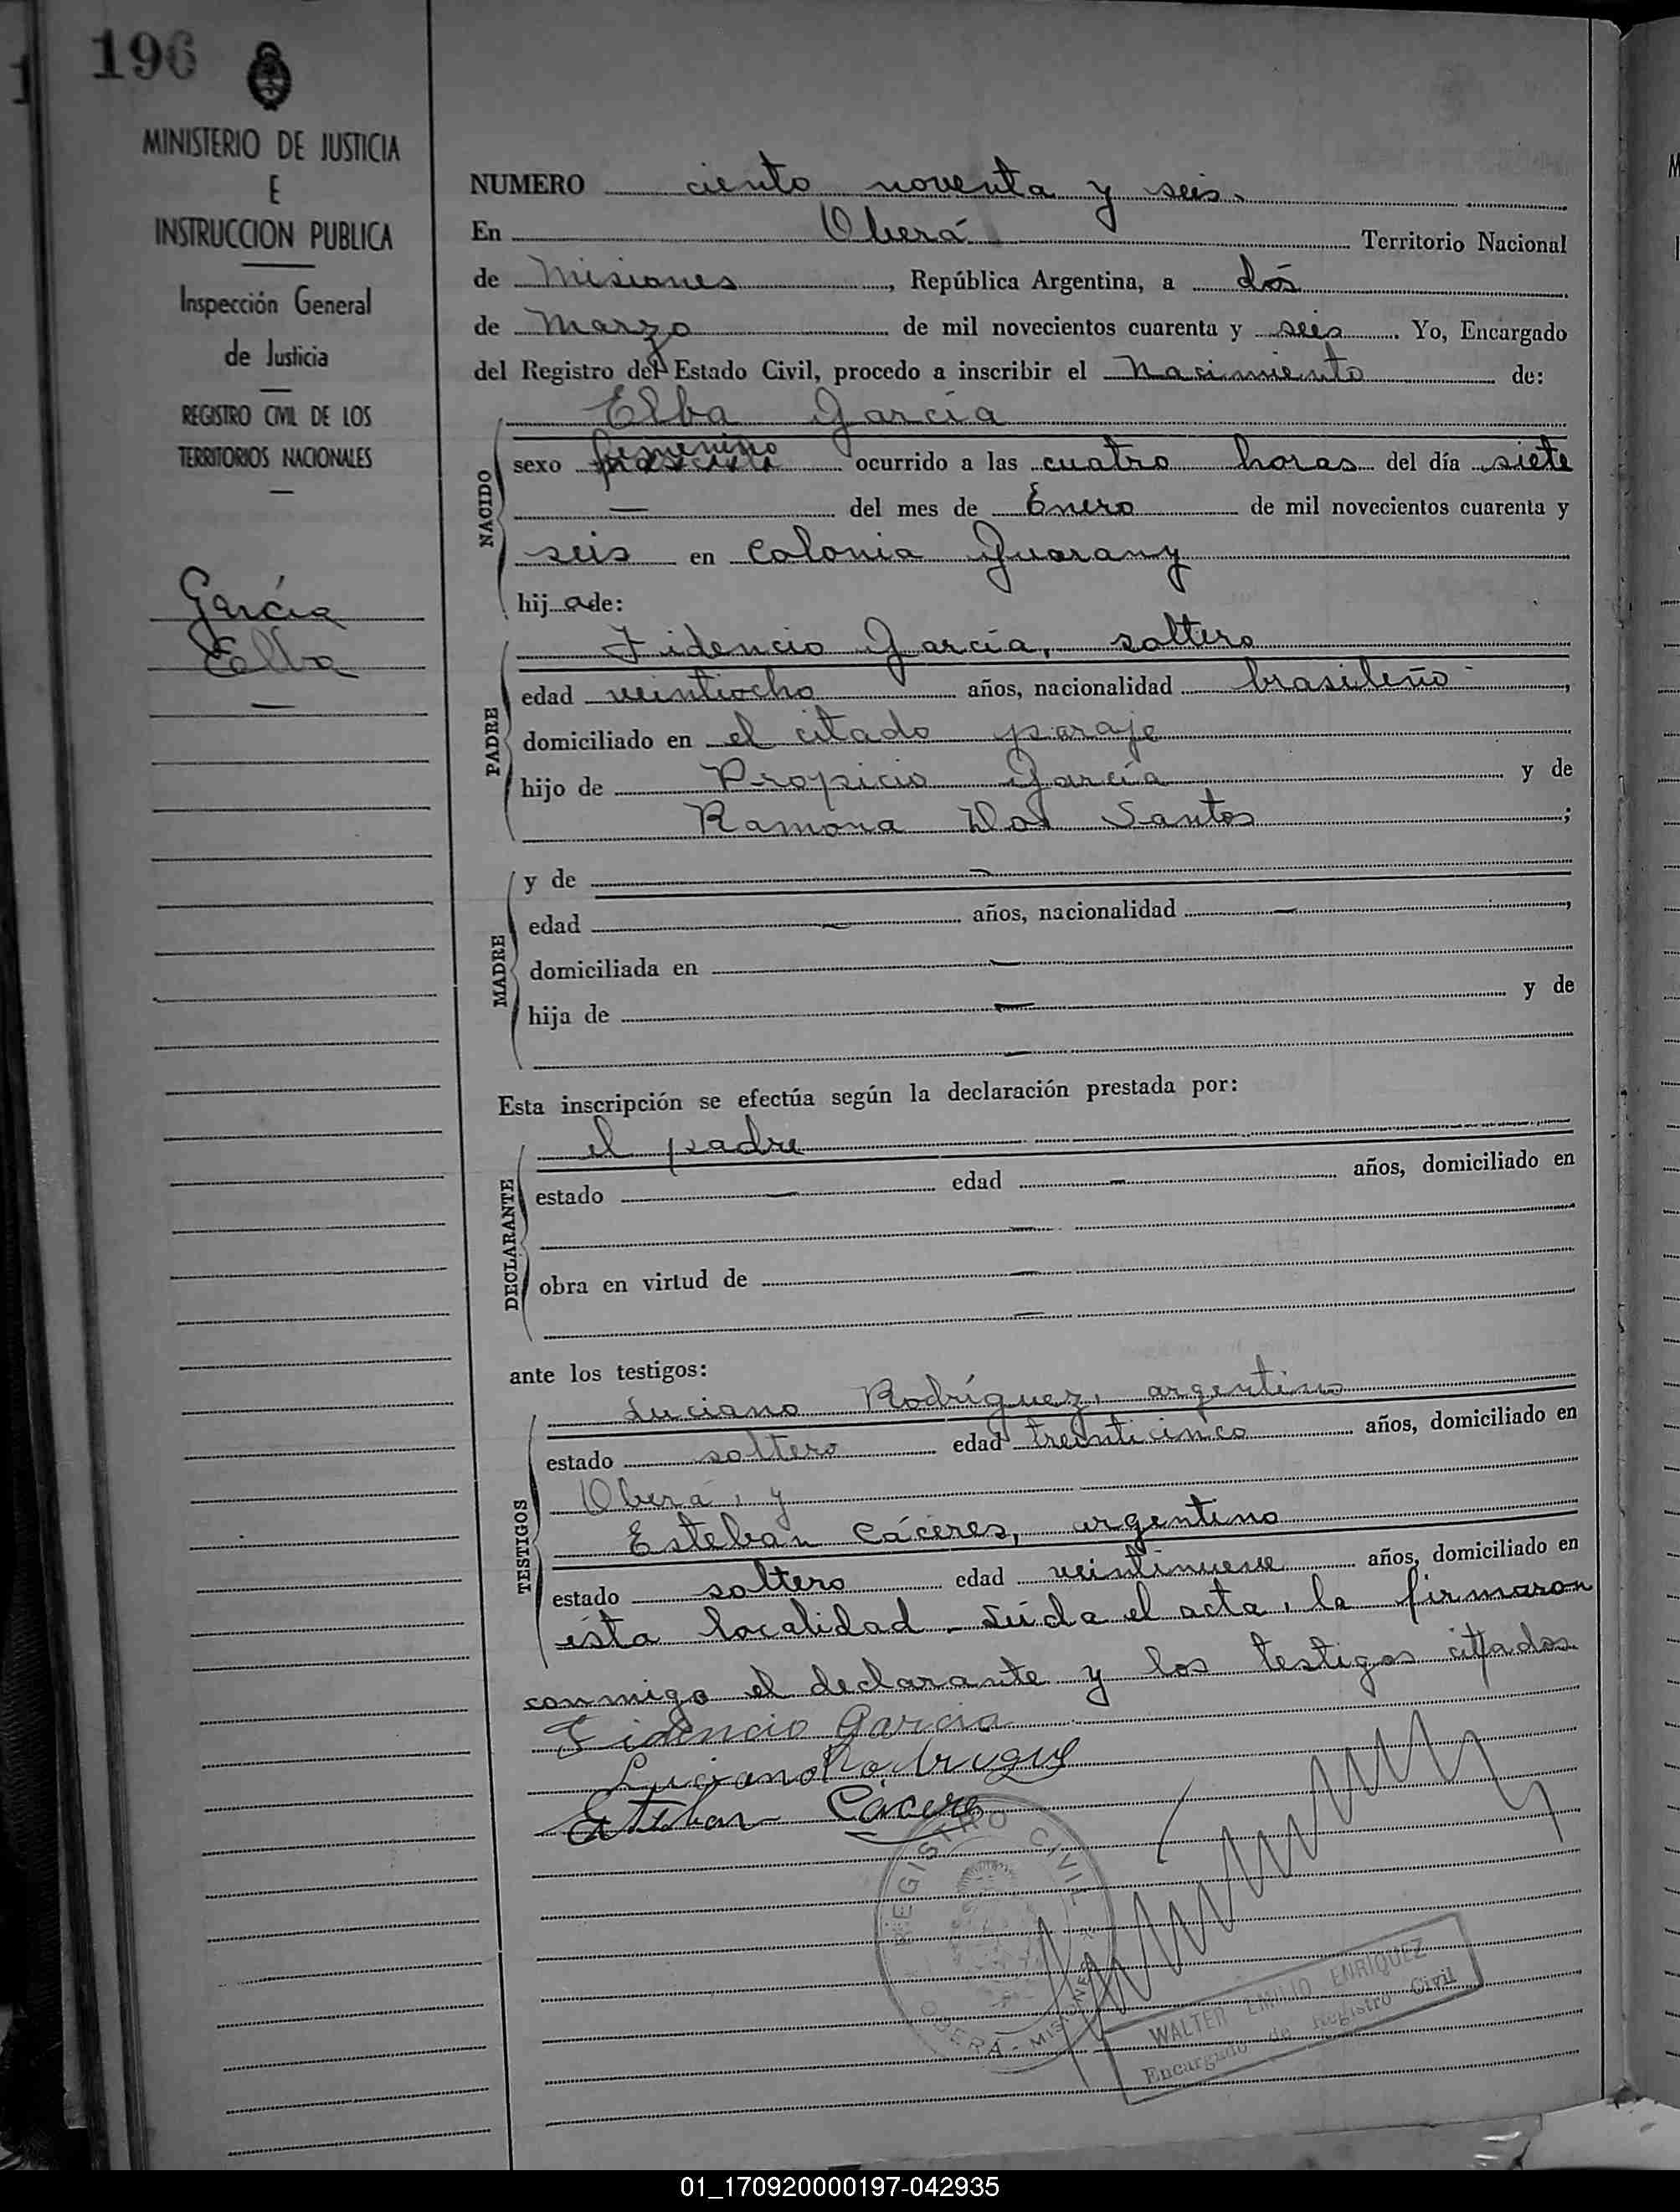 196
MINISTERIO DE JUSTICIA
E
INSTRUCCION PUBLICA
Inspección General
de Justicia
REGISTRO CIVIL DE LOS
TERRITORIOS NACIONALES
García
Elba
NUMERO ciento noventa y seis
En Oberá Territorio Nacional
de Misiones, República Argentina, a dós
de Marzo de mil novecientos cuarenta y seis. Yo, Encargado
del Registro del Estado Civil, procedo a inscribir el Nacimiento de:
Elba García
NACIDO
sexo femenino ocurrido a las cuatro horas del día siete
— del mes de Enero de mil novecientos cuarenta y
seis en Colonia Guarany
hij a de:
PADRE
Fidencio García, soltero
edad veintiocho años, nacionalidad brasileño,
domiciliado en el citado paraje
hijo de Propicio García y de
Ramona Dos Santos;
MADRE
y de —
edad — años, nacionalidad —,
domiciliada en —
hija de — y de
—
Esta inscripción se efectúa según la declaración prestada por:
DECLARANTE
el padre
estado — edad — años, domiciliado en
—
obra en virtud de —
—
ante los testigos:
TESTIGOS
Luciano Rodríguez, argentino
estado soltero edad treinticinco años, domiciliado en
Oberá, y
Esteban Cáceres, argentino
estado soltero edad veintinueve años, domiciliado en
ésta localidad. Leída el acta, la firmaron
conmigo el declarante y los testigos citados.
Fidencio Garcia
Luciano Rodrigue
Esteban Cacere
REGISTRO CIVIL
OBERÁ - MISIONES
WALTER EMILIO ENRIQUEZ
Encargado de Registro Civil
01_170920000197-042935